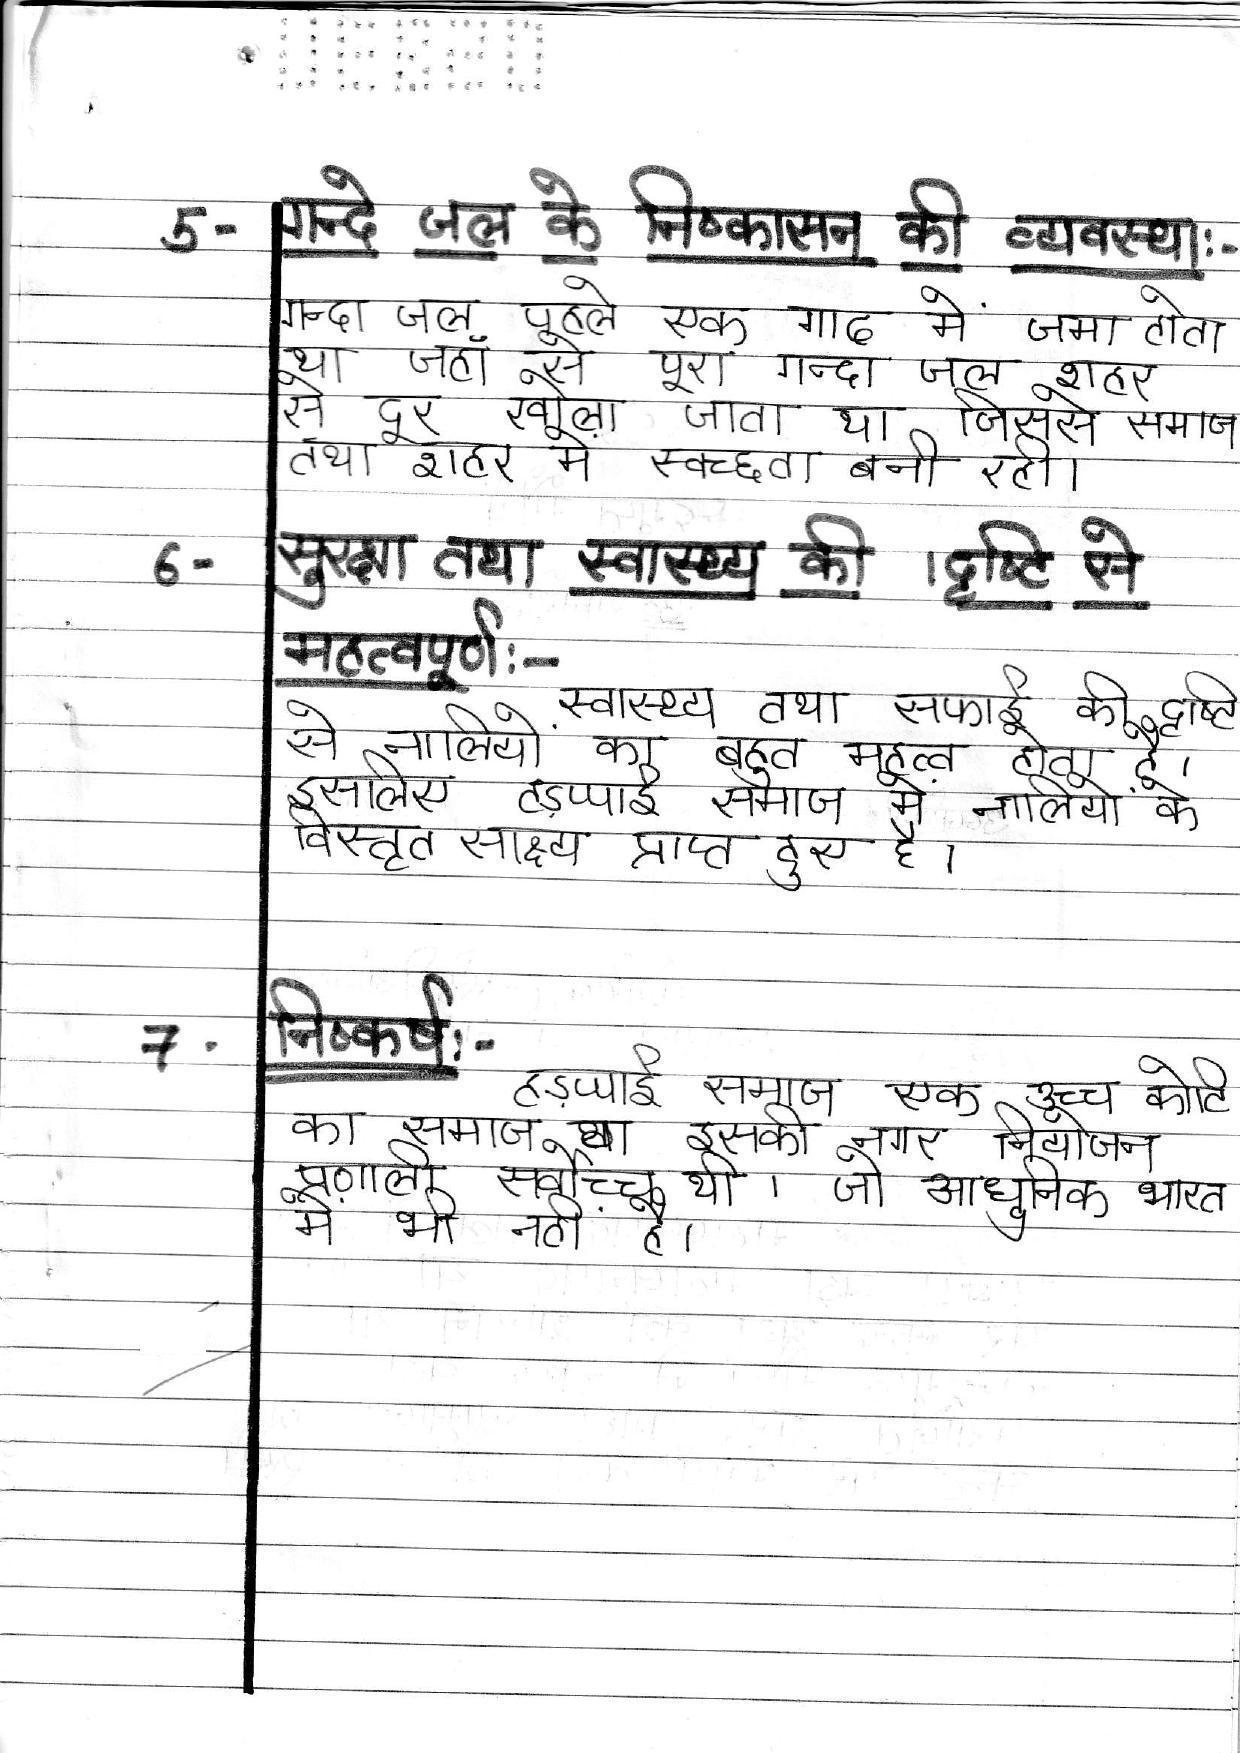 5- गन्दे जल के निष्कासन की व्यवस्था:-
गन्दा जल पहले एक गाद में जमा होता
था जहाँ से पूरा गन्दा जल शहर
से दूर खोला जाता था जिससे समाज
तथा शहर मे स्वच्छता बनी रही।
6- सुरक्षा तथा स्वास्थ्य की दृष्टि से
महत्वपूर्ण:-
स्वास्थ्य तथा सफाई की दृष्टि
से नालियो का बहुत महत्व होता है।
इसलिए हड़प्पाई समाज मे नालियो के
विस्तृत साक्ष्य प्राप्त हुए है।
7. निष्कर्ष:-
हड़प्पाई समाज एक उच्च कोटि
का समाज था इसकी नगर नियोजन
प्रणाली सर्वोच्च थी। जो आधुनिक भारत
मे भी नही है।